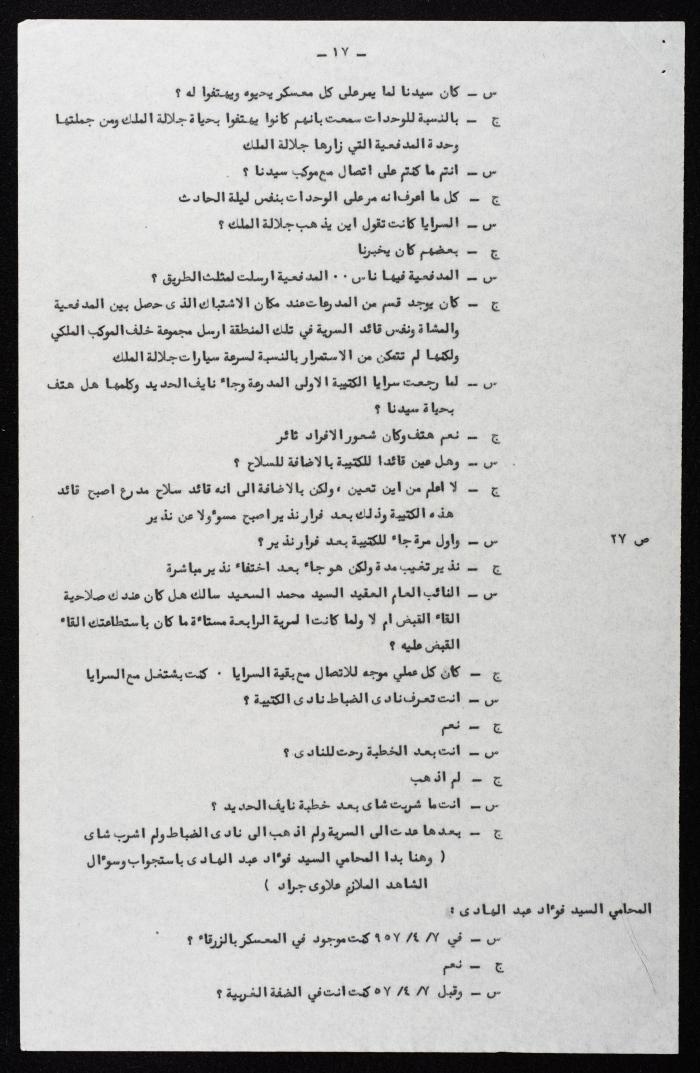 – ١٧ –
س – كان سيدنا لما يمر على كل معسكر يحيوه ويهتفوا له ؟
ج – بالنسبة للوحدات سمعت بانهم كانوا يهتفوا بحياة جلالة الملك ومن جملتها
وحدة المدفعية التي زارها جلالة الملك
س – انتم ما كنتم على اتصال مع موكب سيدنا ؟
ج – كل ما اعرف انه مر على الوحدات بنفس ليلة الحادث
س – السرايا كانت تقول اين يذهب جلالة الملك ؟
ج – بعضهم كان يخبرنا
س – المدفعية فيها ناس ٠٠ المدفعية ارسلت لمثلث الطريق ؟
ج – كان يوجد قسم من المدرعات عند مكان الاشتباك الذى حصل بين المدفعية
والمشاة ونفس قائد السرية في تلك المنطقة ارسل مجموعة خلف الموكب الملكي
ولكنها لم تتمكن من الاستمرار بالنسبة لسرعة سيارات جلالة الملك
س – لما رجعت سرايا الكتيبة الاولى المدرعة وجاء نايف الحديد وكلمها هل هتف
بحياة سيدنا ؟
ج – نعم هتف وكان شعور الافراد ثائر
س – وهل عين قائدا للكتيبة بالاضافة للسلاح ؟
ج – لا اعلم من اين تعين ، ولكن بالاضافة الى انه قائد سلاح مدرع اصبح قائد
هذه الكتيبة وذلك بعد فرار نذير اصبح مسوءولا عن نذير
ص ٢٧
س – واول مرة جاء للكتيبة بعد فرار نذير ؟
ج – نذير تغيب مدة ولكن هو جاء بعد اختفاء نذير مباشرة
س – النائب العام العقيد السيد محمد السعيد سالك هل كان عندك صلاحية
القاء القبض ام لا ولما كانت السرية الرابعة مستاءة ما كان باستطاعتك القاء
القبض عليه ؟
ج – كان كل عملي موجه للاتصال مع بقية السرايا ٠ كنت بشتغل مع السرايا
س – انت تعرف نادى الضباط نادى الكتيبة ؟
ج – نعم
س – انت بعد الخطبة رحت للنادى ؟
ج – لم اذهب
س – انت ما شربت شاى بعد خطبة نايف الحديد ؟
ج – بعدها عدت الى السرية ولم اذهب الى نادى الضباط ولم اشرب شاى
( وهنا بدا المحامي السيد فوءاد عبد الهادى باستجواب وسوءال
الشاهد الملازم علاوى جراد )
المحامي السيد فوءاد عبد الهادى :
س – في ٧/ ٤/ ٩٥٧ كنت موجود في المعسكر بالزرقاء ؟
ج – نعم
س – وقبل ٧/ ٤/ ٥٧ كنت انت في الضفة الغربية ؟